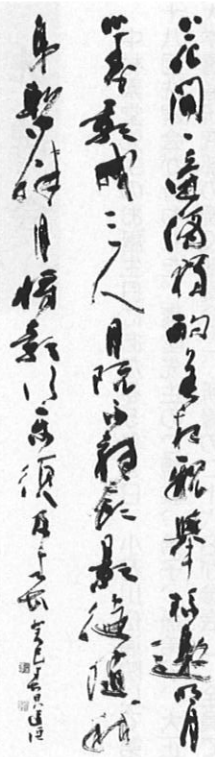 花間一壺酒獨酌無相親舉杯邀明月
對影成三人月既不解飲影徒隨我
身暫伴月將影行樂須及春